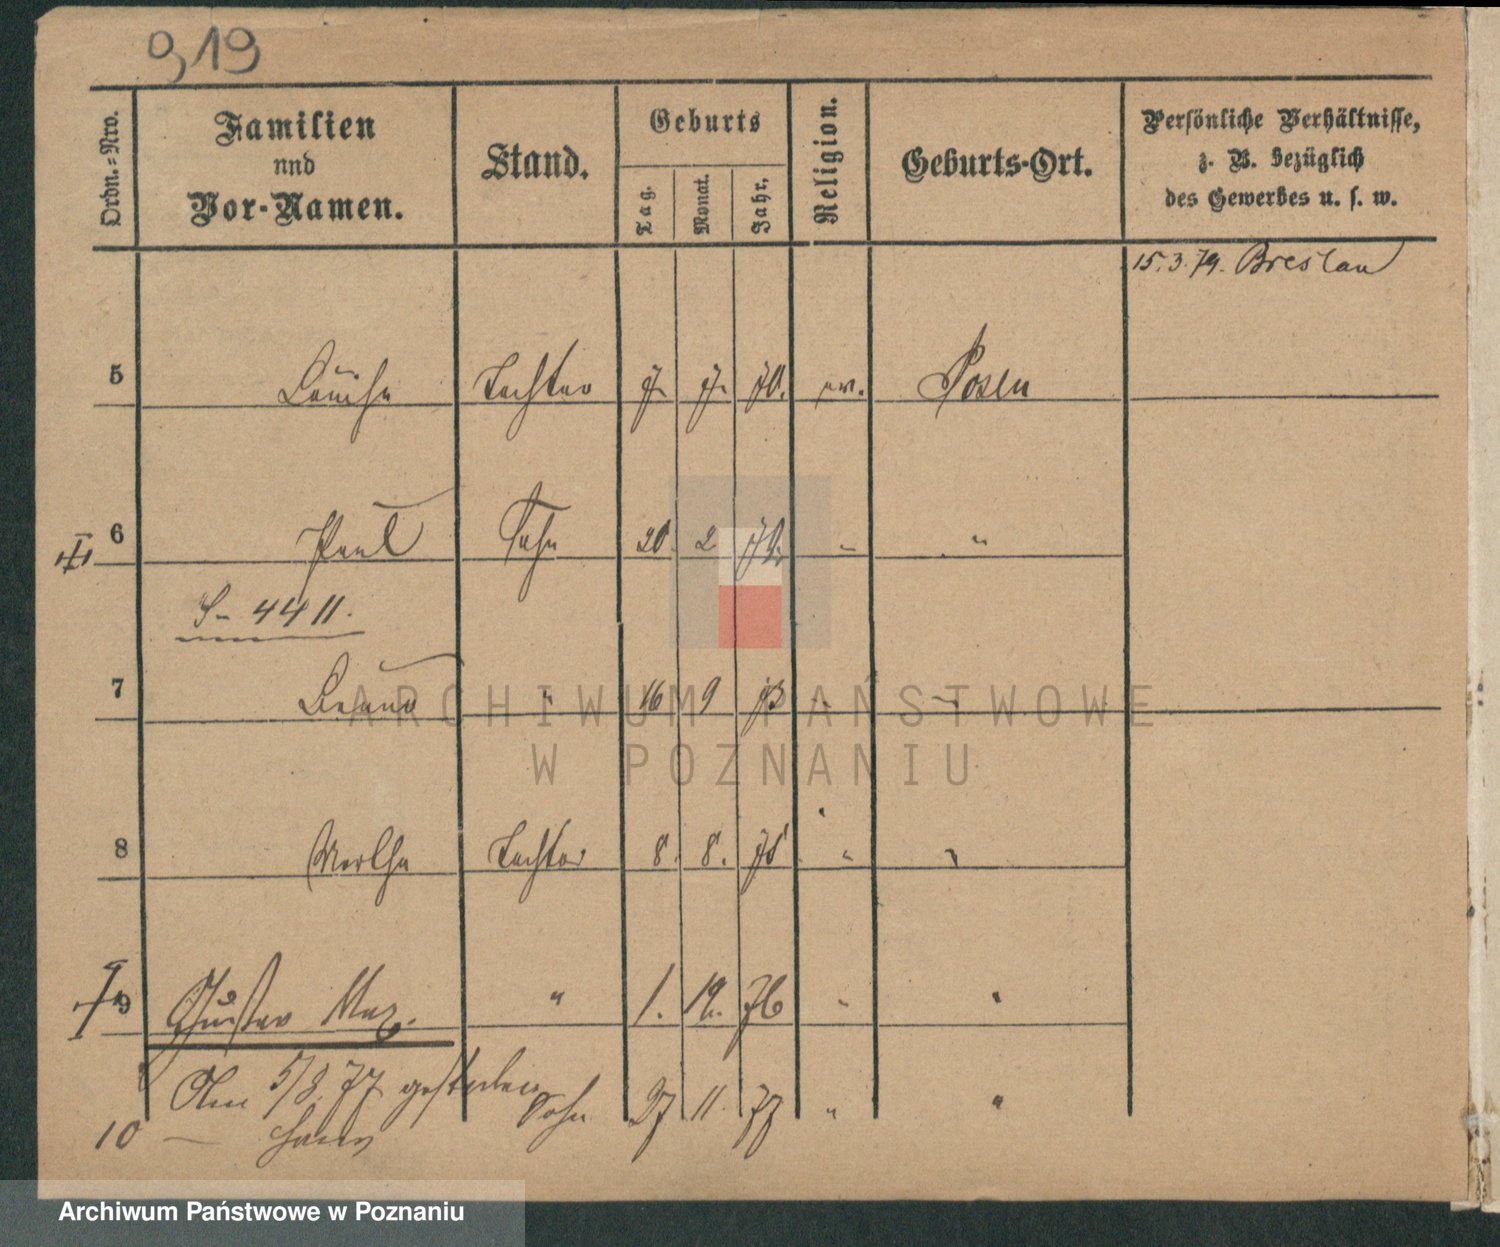 919
Ordn.=Nro.
Familien
nnd
Vor-Namen.
Stand.
Geburts
Tag.
Monat.
Jahr.
Religion.
Geburts-Ort.
Persönliche Verhältnisse,
z. B. bezüglich
des Gewerbes u. s. w.
15.3.79. Breslau
5 Louise Tochter 7. 7. 70. ev. Posen
6 Paul Sohn 20. 2 " "
S- 4411.
7 " 16 9 73 " "
8 Martha Tochter 8. 8. 75 " "
9 Gustav Max. " 1. 12. 76 " "
Am 5/8. 77 gestorben
10 — Sohn 27 11. 77 " "
ARCHIWUM PAŃSTWOWE
W POZNANIU
Archiwum Państwowe w Poznaniu